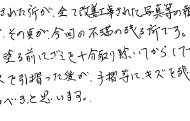 された所が、全て改善工事された写真等の
、その事が今回の不満の残る所です。
塗る前にゴミを十分取り除いてからして
スを引摺った後が、手摺等に、キズを残
べきと思います。